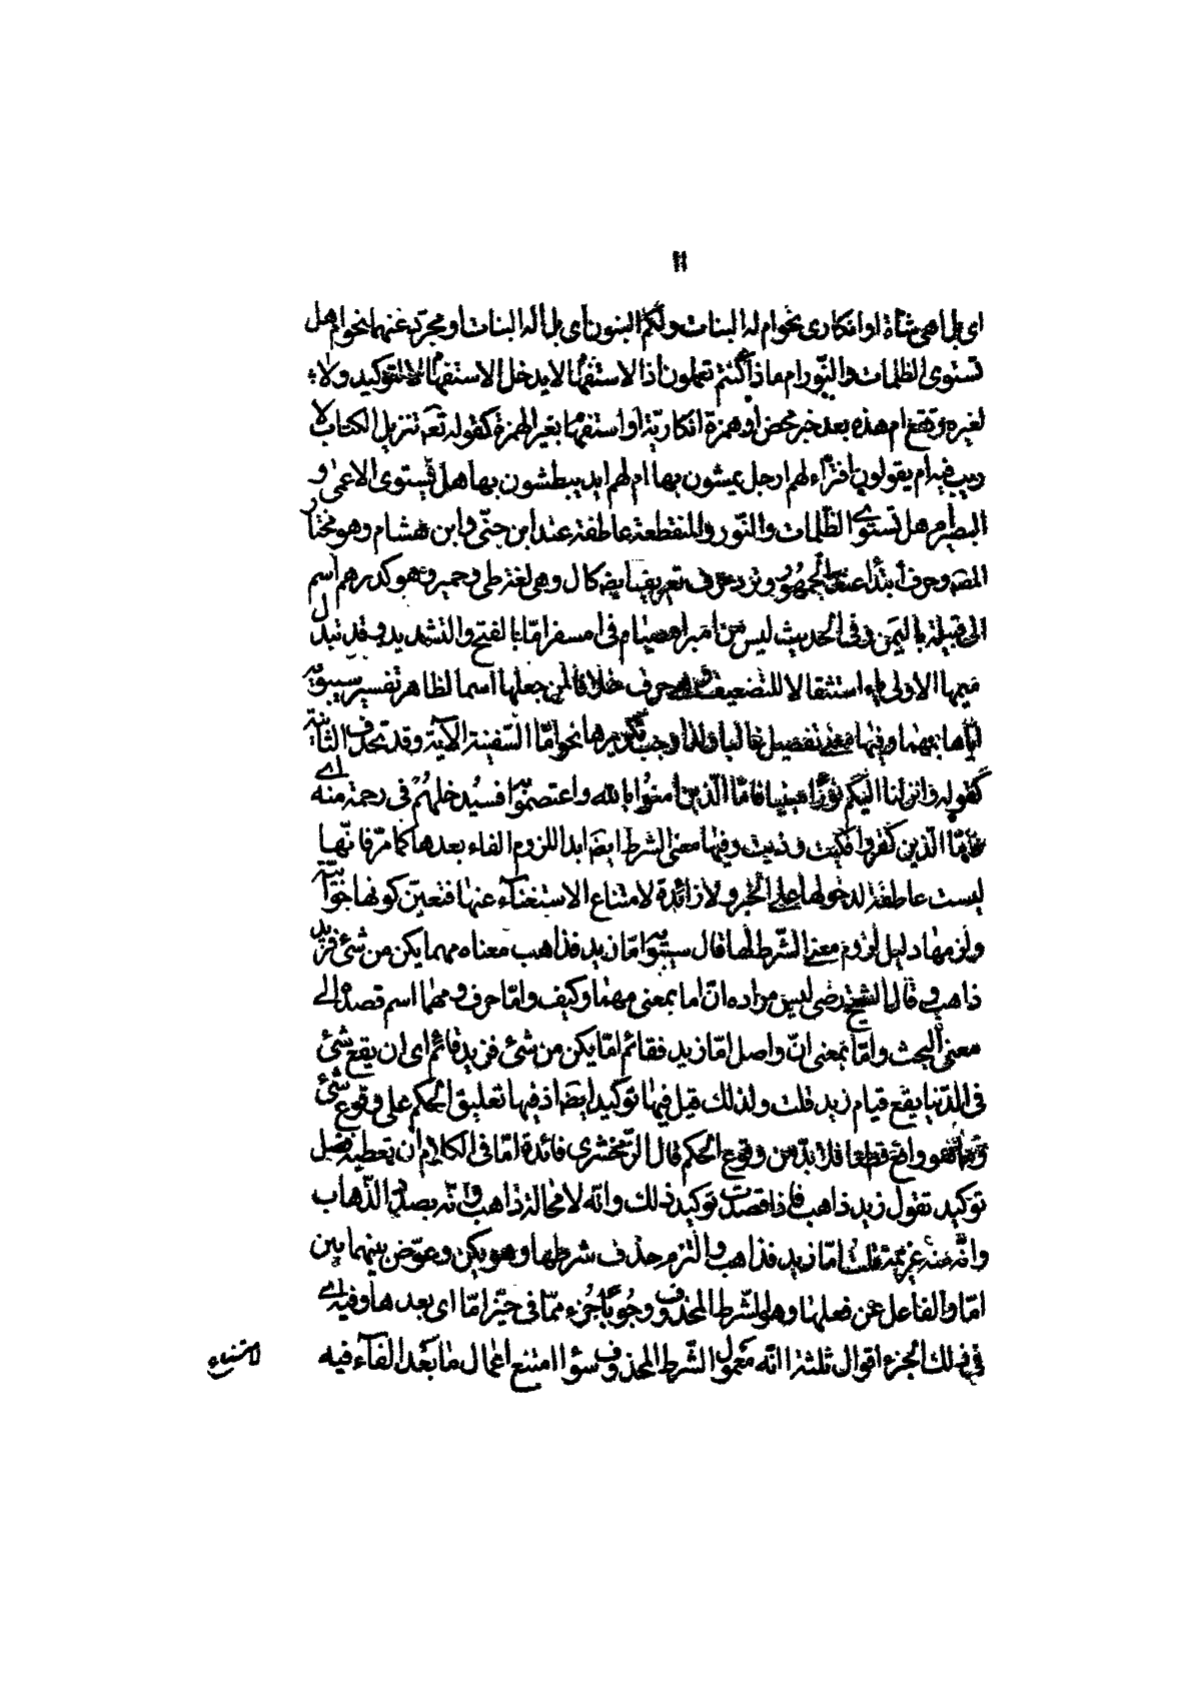 ١١
اى بل اهى شاة او انكارى نحو ام له البنات ولكم البنون اى بل اله البنات او مجرّد عنهما نحو ام هل
تستوى الظلمات والنّور ام ماذا كنتم تعملون اذ الاستفهام لا يدخل الاستفهام الا للتوكيد ولا
لغيره وتقع ام هذه بعد خبر محض او همزة انكاريّة او استفهام بغير الهمزة كقوله تعه تنزيل الكتاب لا
ريب فيه ام يقولون افتراء لهم ارجل يمشون بها ام لهم ايد يبطشون بها هل يستوى الاعمى و
البصير ام هل تستوى الظّلمات والنّور والمنقطعة عاطفة عند ابن جنّى وابن هشام وهو مختار
المصه وحرف ابتداء عند الجمهور وترد حرف تعريف ايضه كال وهى لغة طى وحمير وهو كدرهم اسم
الى قبيلة باليمن وفى الحديث ليس من امبر امصيام فى امسفر امّا بالفتح والتشديد وقد تبدل
ميمها الاولى ياء استثقالا للتضعيف وهى حرف خلافا لمن جعلها اسما لظاهر تفسير سيبويه
ايّاها بمهما وفيها معنى تفصيل غالبا ولذا وجب تكريرها نحو امّا السّفينة الآية وقد تحذف الثانية
كقوله وانزلنا اليكم نورًا مبينا فامّا الّذين امنوا بالله واعتصموا به فسيدخلهم فى رحمة منه اى
وامّا الّذين كفروا فكيت وذيت وفيها معنى الشرط ايضه ابدا للزوم الفاء بعدها كما مرّ فانّها
ليست عاطفة لدخولها على الخبر ولا زائدة لامتناع الاستغناء عنها فتعيّن كونها جزائيّة
ولزمها دليل لزوم معنى الشّرط لها قال سيبويه امّا زيد فذاهب معناه مهما يكن من شئ فزيد
ذاهب وقال الشيخ رضى ليس مراده انّ اما بمعنى مهما وكيف وامّا حرف ومهما اسم قصده الى
معنى البحث وامّا بمعنى انّ واصل امّا زيد فقائم امّا يكن من شئ فزيد قائم اى ان يقع شئ
فى الدّنيا يقع قيام زيد قلت ولذلك قيل فيها توكيد ايضه اذ فيها تعليق الحكم على وقوع شئ
وهو واقع قطعا فلا بدّ من وقوع الحكم قال الزّمخشرى فائدة امّا فى الكلام ان تعطيه فضل
توكيد تقول زيد ذاهب فاذا قصدت توكيد ذلك وانّه لا محالة ذاهب وانّه بصدد الذّهاب
وانّه منه عزيمة قلت امّا زيد فذاهب والتزم حذف شرطها وهو يكن وعوّض بينهما بين
امّا والفاء عن فعلها وهو الشّرط المحذوف وجوبًا جزء ممّا فى حيّز امّا اى بعدها وفيه اى
فى ذلك الجزء اقوال ثلثة انّه معمول الشّرط المحذوف سواء امتنع اعمال ما بعد الفآء فيه